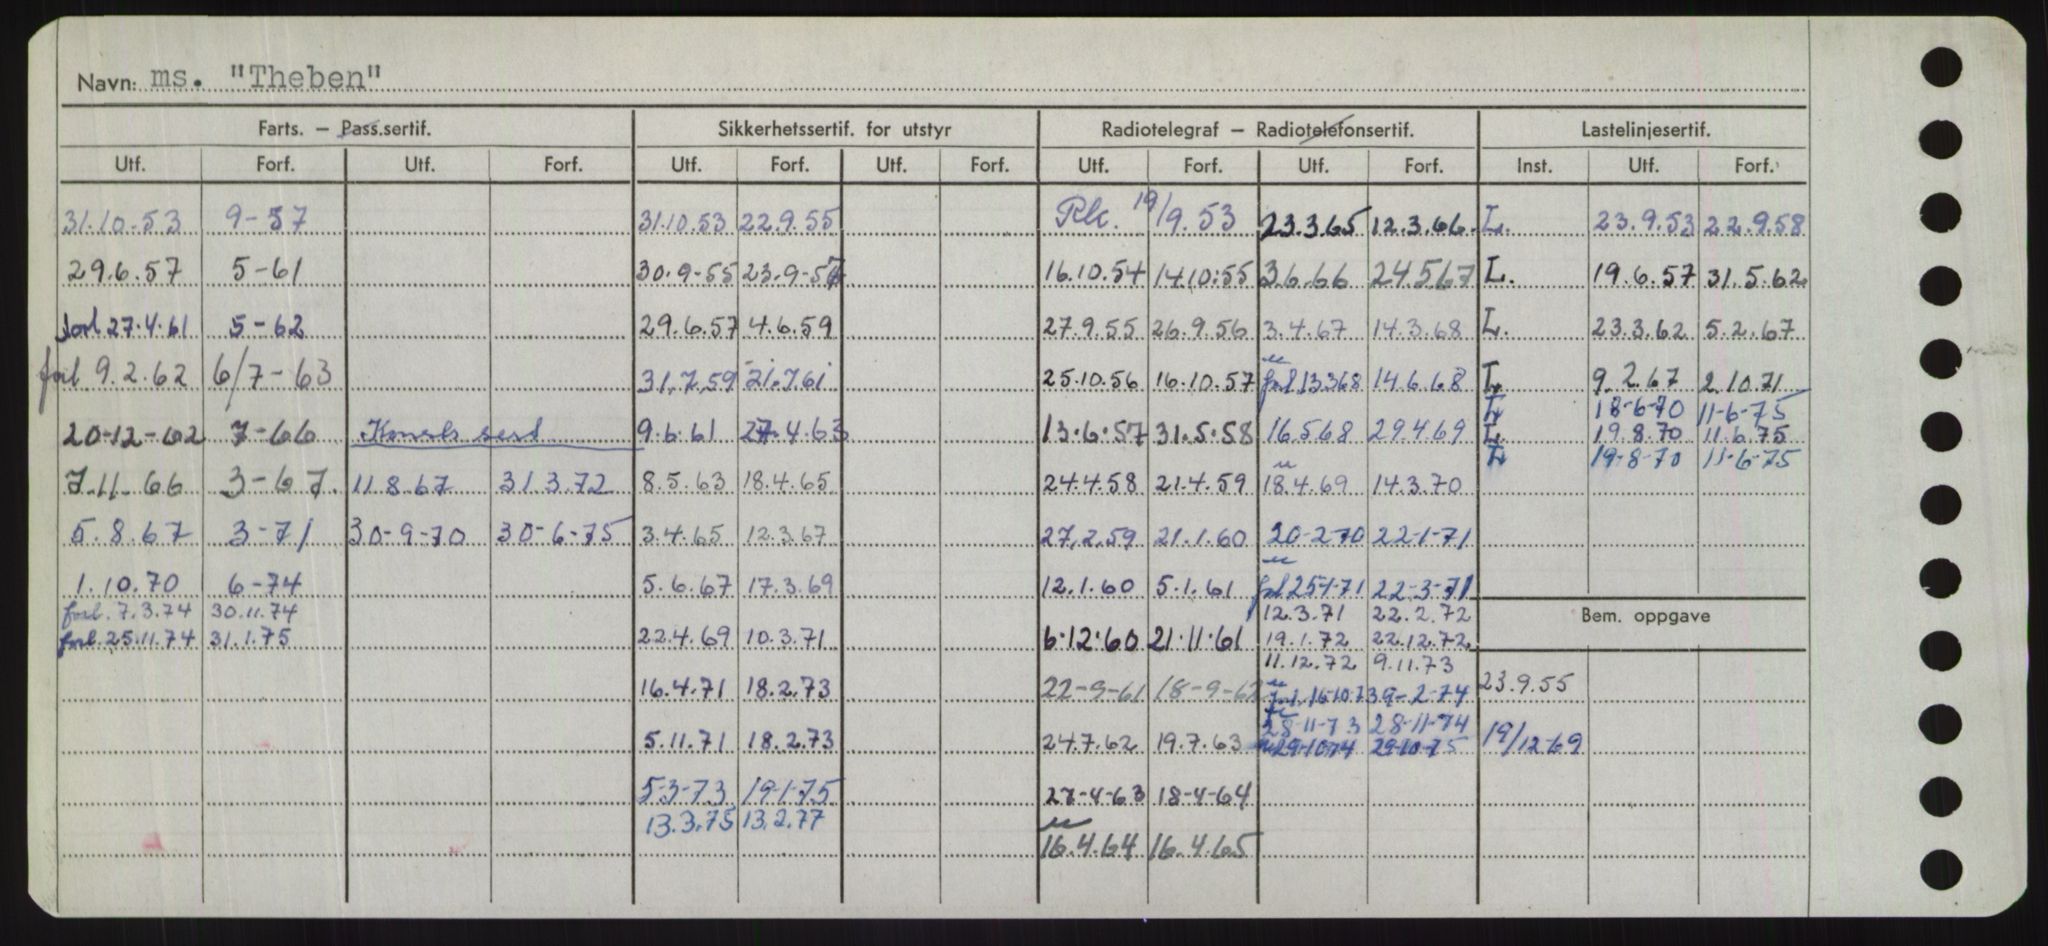 Navn: ms. "Theben"
Farts. – Pass.sertif. Sikkerhetssertif. for utstyr Radiotelegraf – Radiotelefonsertif. Lastelinjesertif.
Utf. Forf. Utf. Forf. Utf. Forf. Utf. Forf. Utf. Forf. Utf. Forf. Inst. Utf. Forf.
31.10.53 9-57 31.10.53 22.9.55 Rk. 19/9.53 23.3.65 12.3.66. L. 23.9.53 22.9.58
29.6.57 5-61 30.9-55 23.9-57 16.10.54 14.10.55 3.6.66 24.5.67 L. 19.6.57 31.5.62
forl 27.4.61 5-62 29.6.57 4.6.59 27.9.55 26.9.56 3.4.67 14.3.68 L. 23.3.62 5.2.67
forl 9.2.62 6/7-63 31.7.59 21.7.61 25.10.56 16.10.57 forl 13.3.68 14.6.68 L. 9.2.67 2.10.71
L 18-6-70 11-6-75
20-12-62 7-66 Konvls sert 9.6.61 27.4.63 13.6.57 31.5.58 16.5.68 29.4.69 L. 19.8.70 11.6.75
L 19-8-70 11-6-75
7.11.66 3-67. 11.8.67 31.3.72 8.5.63 18.4.65 24.4.58 21.4.59 18.4.69 14.3.70
5.8.67 3-71 30-9-70 30-6-75 3.4.65 12.3.67 27.2.59 21.1.60 20-2-70 22-1-71
1.10.70 6-74 5.6.67 17.3.69 12.1.60 5.1.61 forl 25-1-71 22-3-71
forl. 7.3.74 30.11.74 12.3.71 22.2.72 Bem. oppgave
forl. 25.11.74 31.1.75 22.4.69 10.3.71 6.12.60 21.11.61 19.1.72 22.12.72
11.12.72 9.11.73
16.4.71 18.2.73 22-9-61 18-9-62 forl. 16-10-73 9-2-74 23.9.55
28-11-73 28-11-74
5.11.71 18.2.73 24.7.62 19.7.63 29-10-74 29-10-75 19/12-69
5-3-73 19-1-75 27-4-63 18-4-64
13.3.75 13.2.77
16.4.64 16.4.65